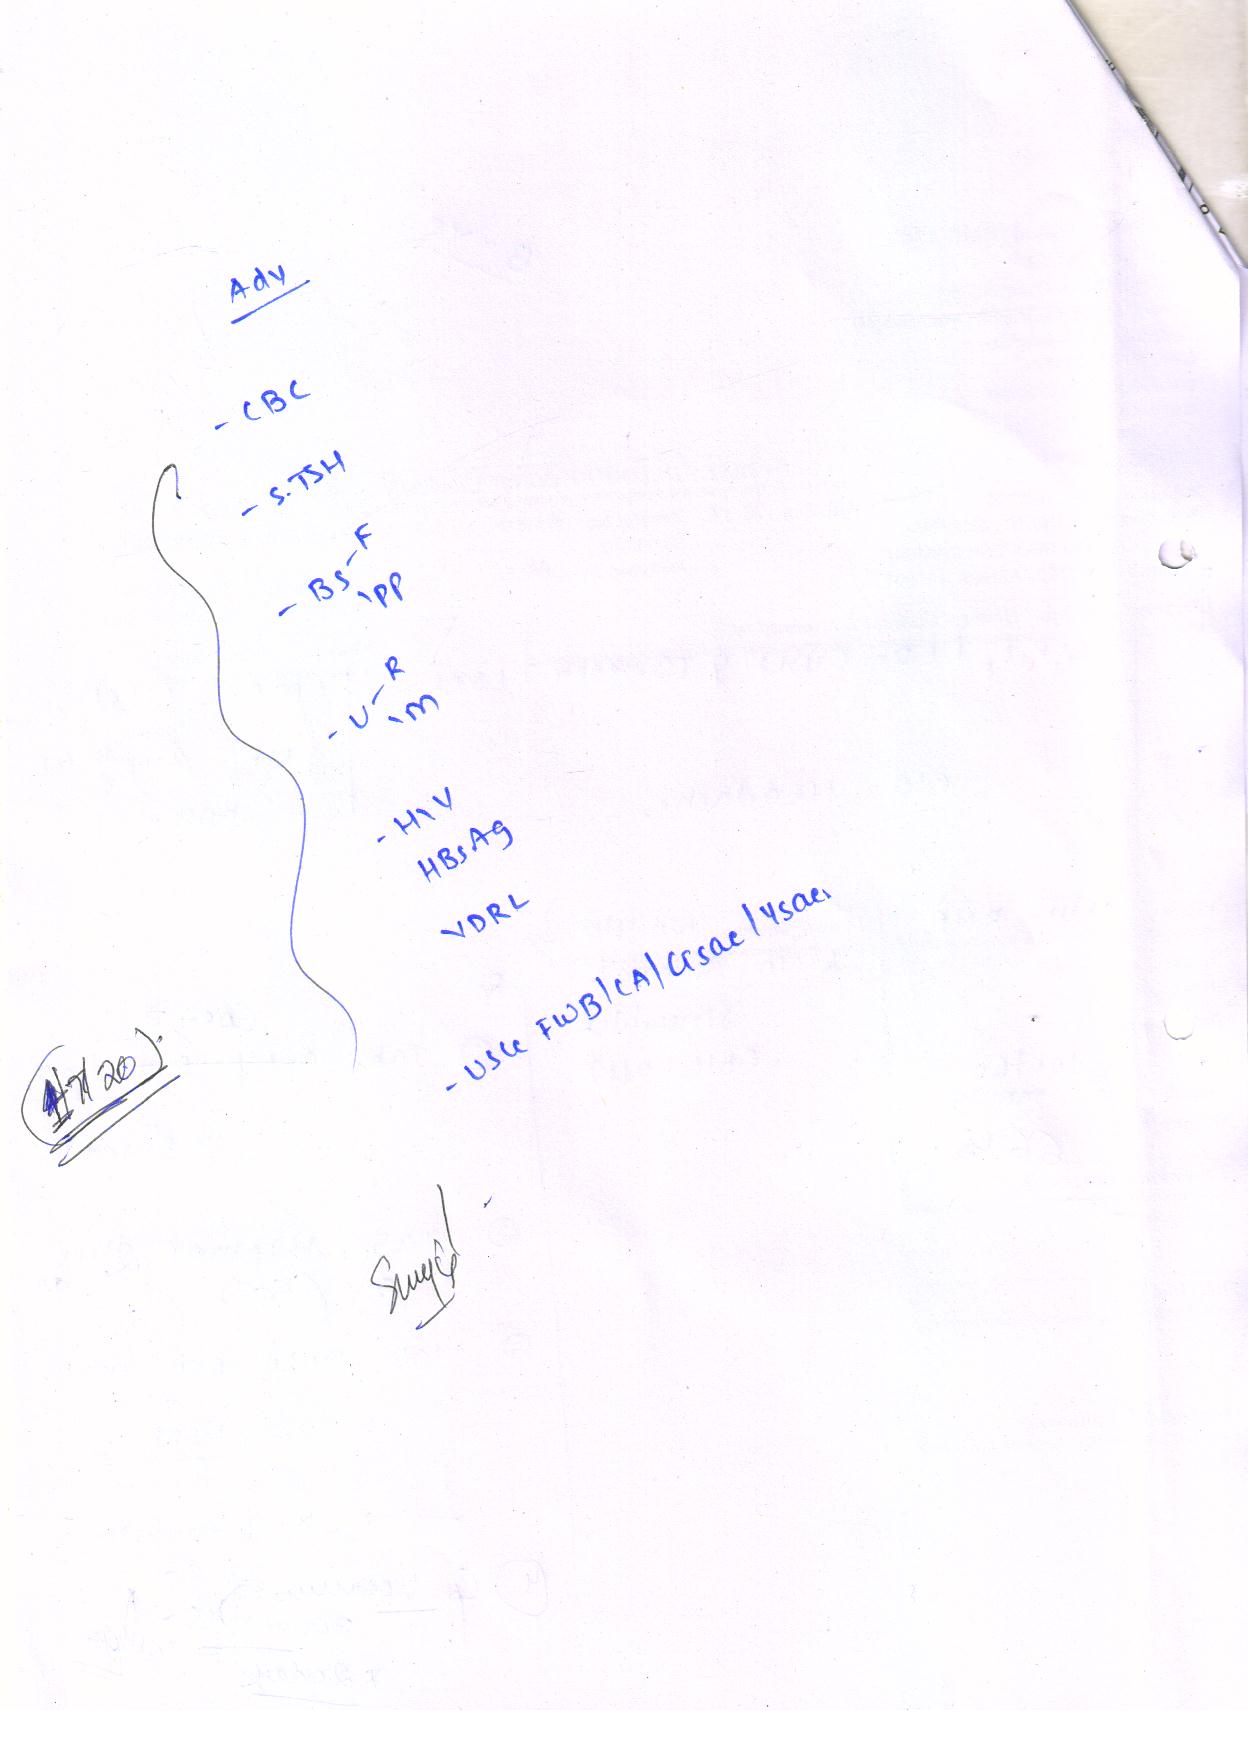 Adv
- CBC
- S.TSH
- BS - F
\ PP
- U - R
\ M
- HIV
HBsAg
VDRL
- USG FWB/CA/Gsac/Ysac.